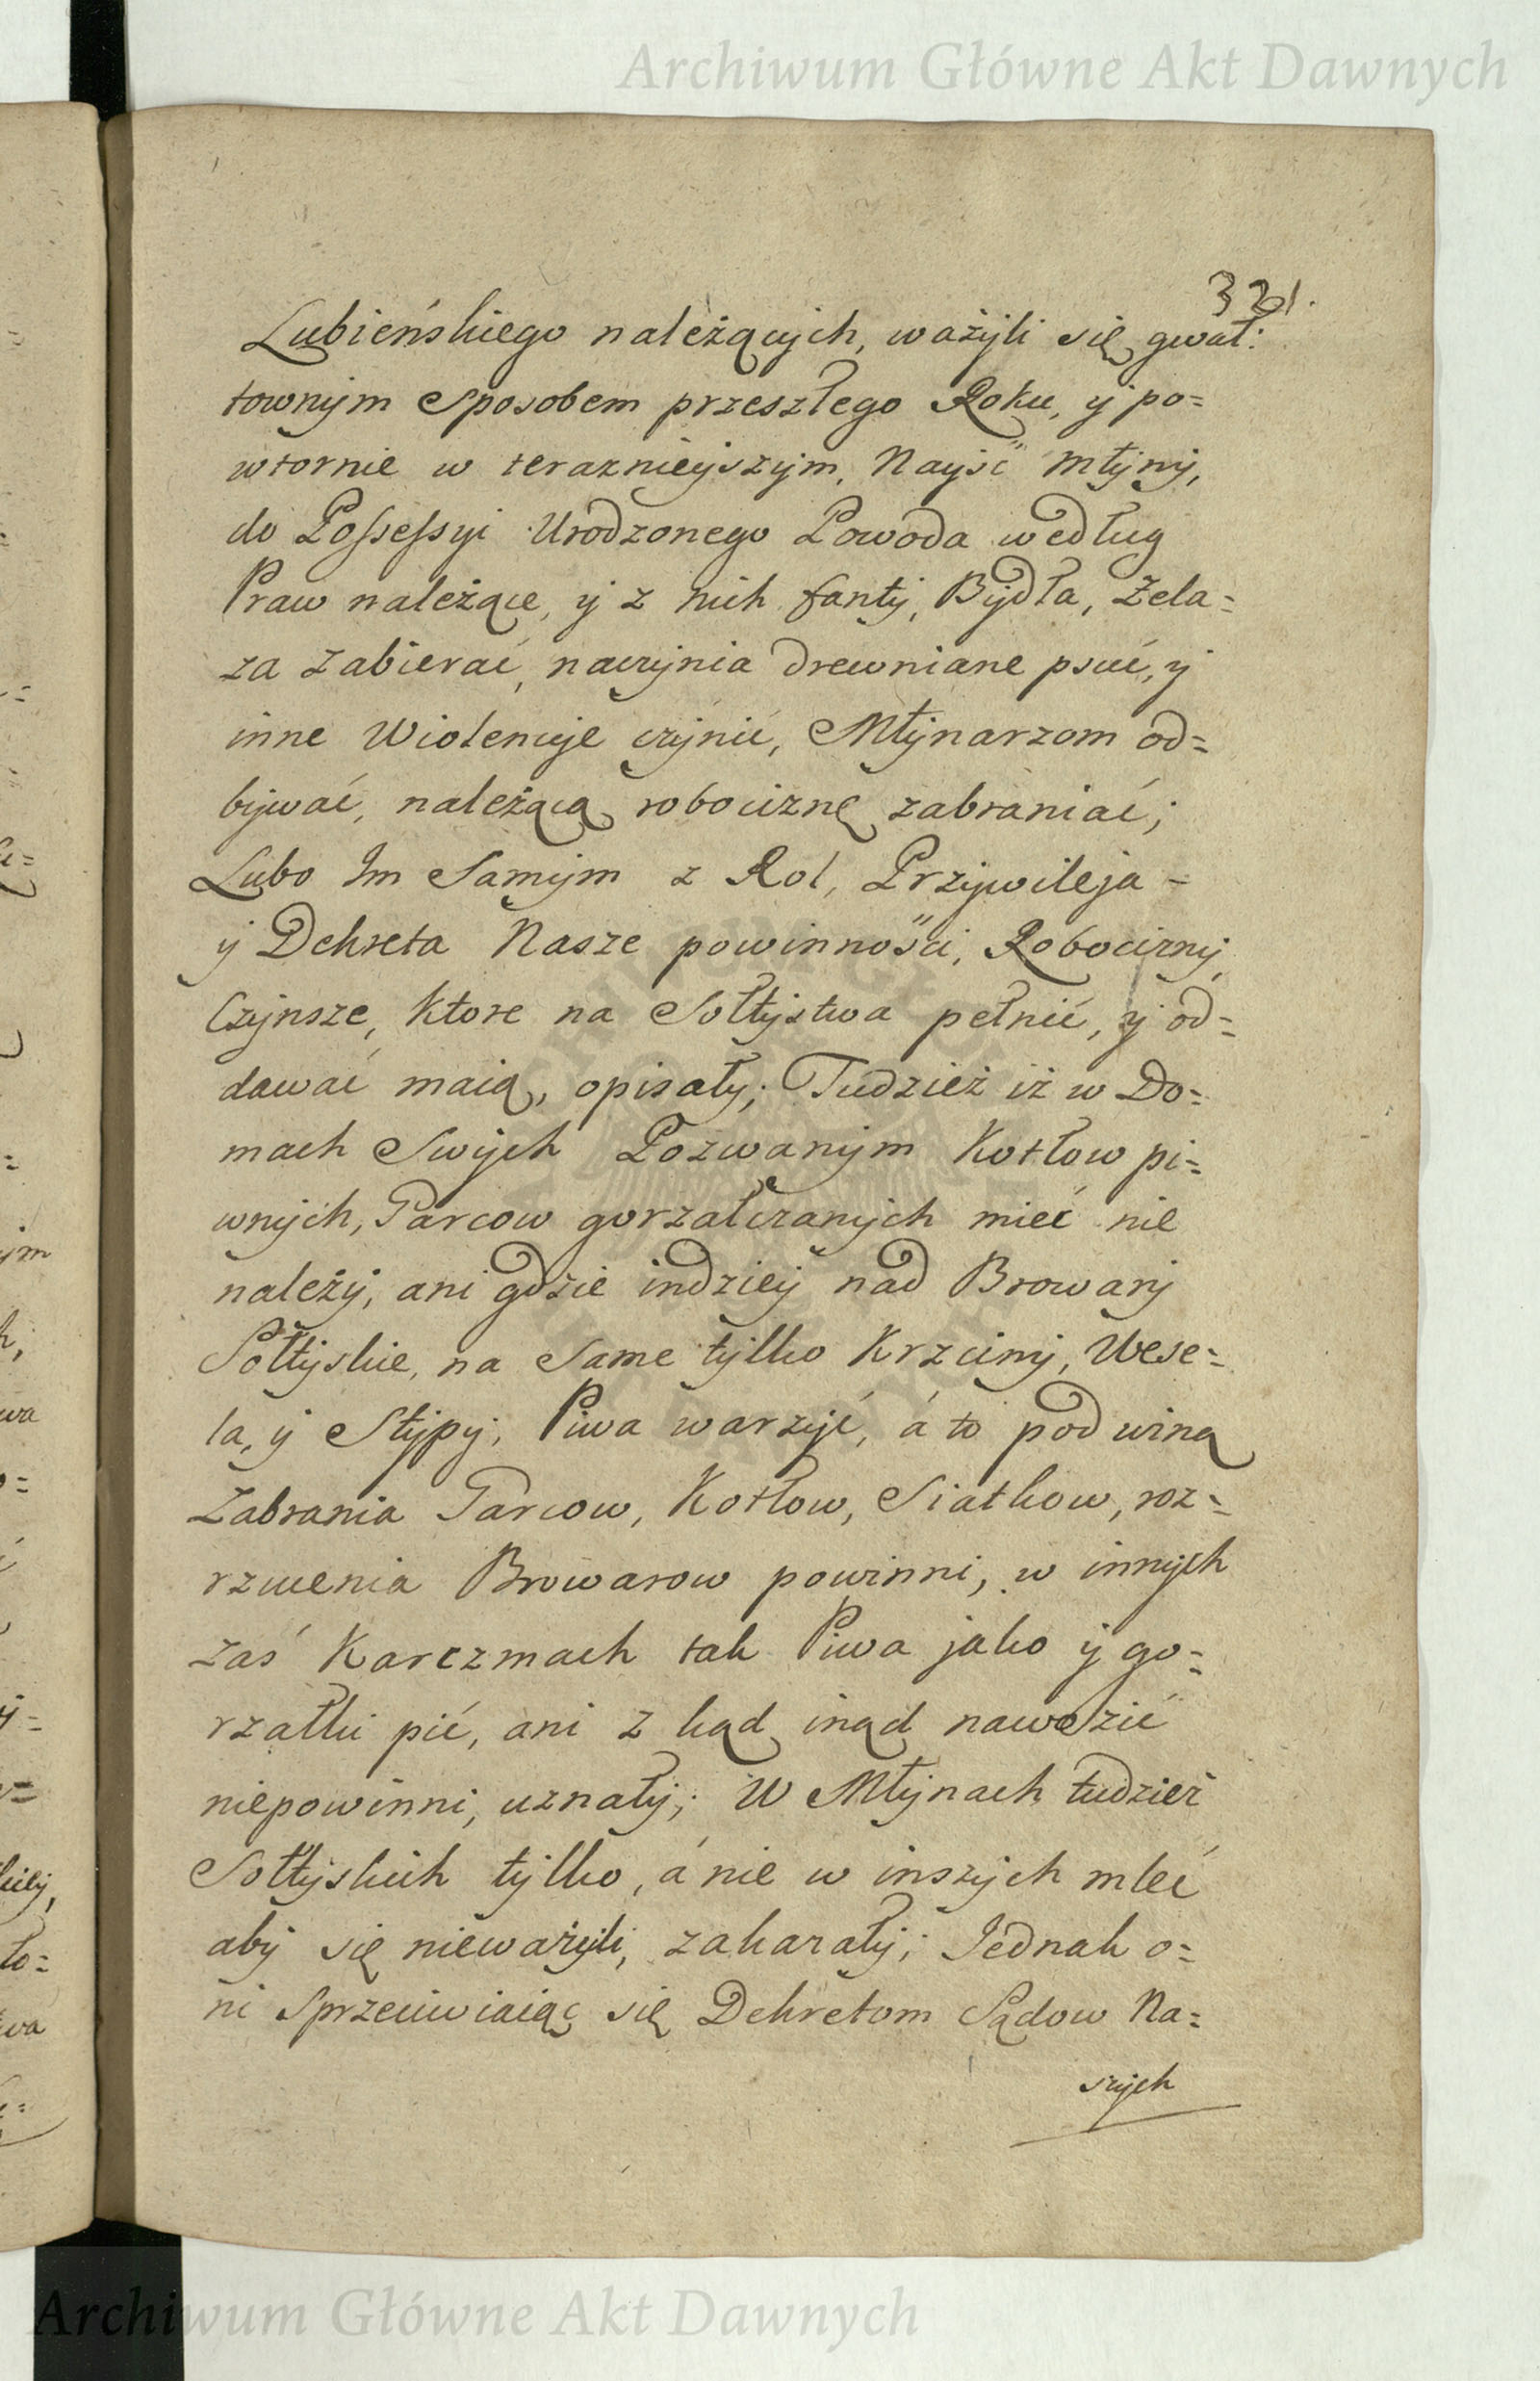 Archiwum Główne Akt Dawnych
321.
Lubieńskiego należących, ważyli się gwał:
townym Sposobem przeszłego Roku, y po=
wtornie w terazniejszym, Nayść Młyny,
do Possessyi Urodzonego Powoda według
Praw należące, y z nich fanty, Bydła, Żela=
za zabierać, naczynia drewniane psuć, y
inne Wiolencye czynić, Młynarzom od=
bywać, należącą robociznę zabraniać;
Lubo Im Samym z Rol, Przywileja -
y Dekreta Nasze powinności, Robocizny,
Czynsze, Ktore na Sołtystwa pełnić, y od=
dawać maią, opisały; Tudzież iż w Do=
mach Swych Pozwanym Kotłow pi=
wnych, Garcow gorzałczanych mieć nie
należy, ani gdzie indziey nad Browary
Sołtyskie, na Same tylko Krzciny, Wese=
la, y Stypy, Piwa warzyć, á to pod winą
Zabrania Garcow, Kotłow, Siatkow, roz=
rzucenia Browarow powinni, w innych
zaś Karczmach tak Piwa jako y go=
rzałki pić, ani z kąd inąd nawozić
niepowinni, uznały; W Młynach tudzież
Sołtyskich tylko, á nie w inszych mleć
aby się nieważyli, zakazały; Jednak o=
ni Sprzeciwiaiąc się Dekretom Sądow Na=
szych
Archiwum Główne Akt Dawnych